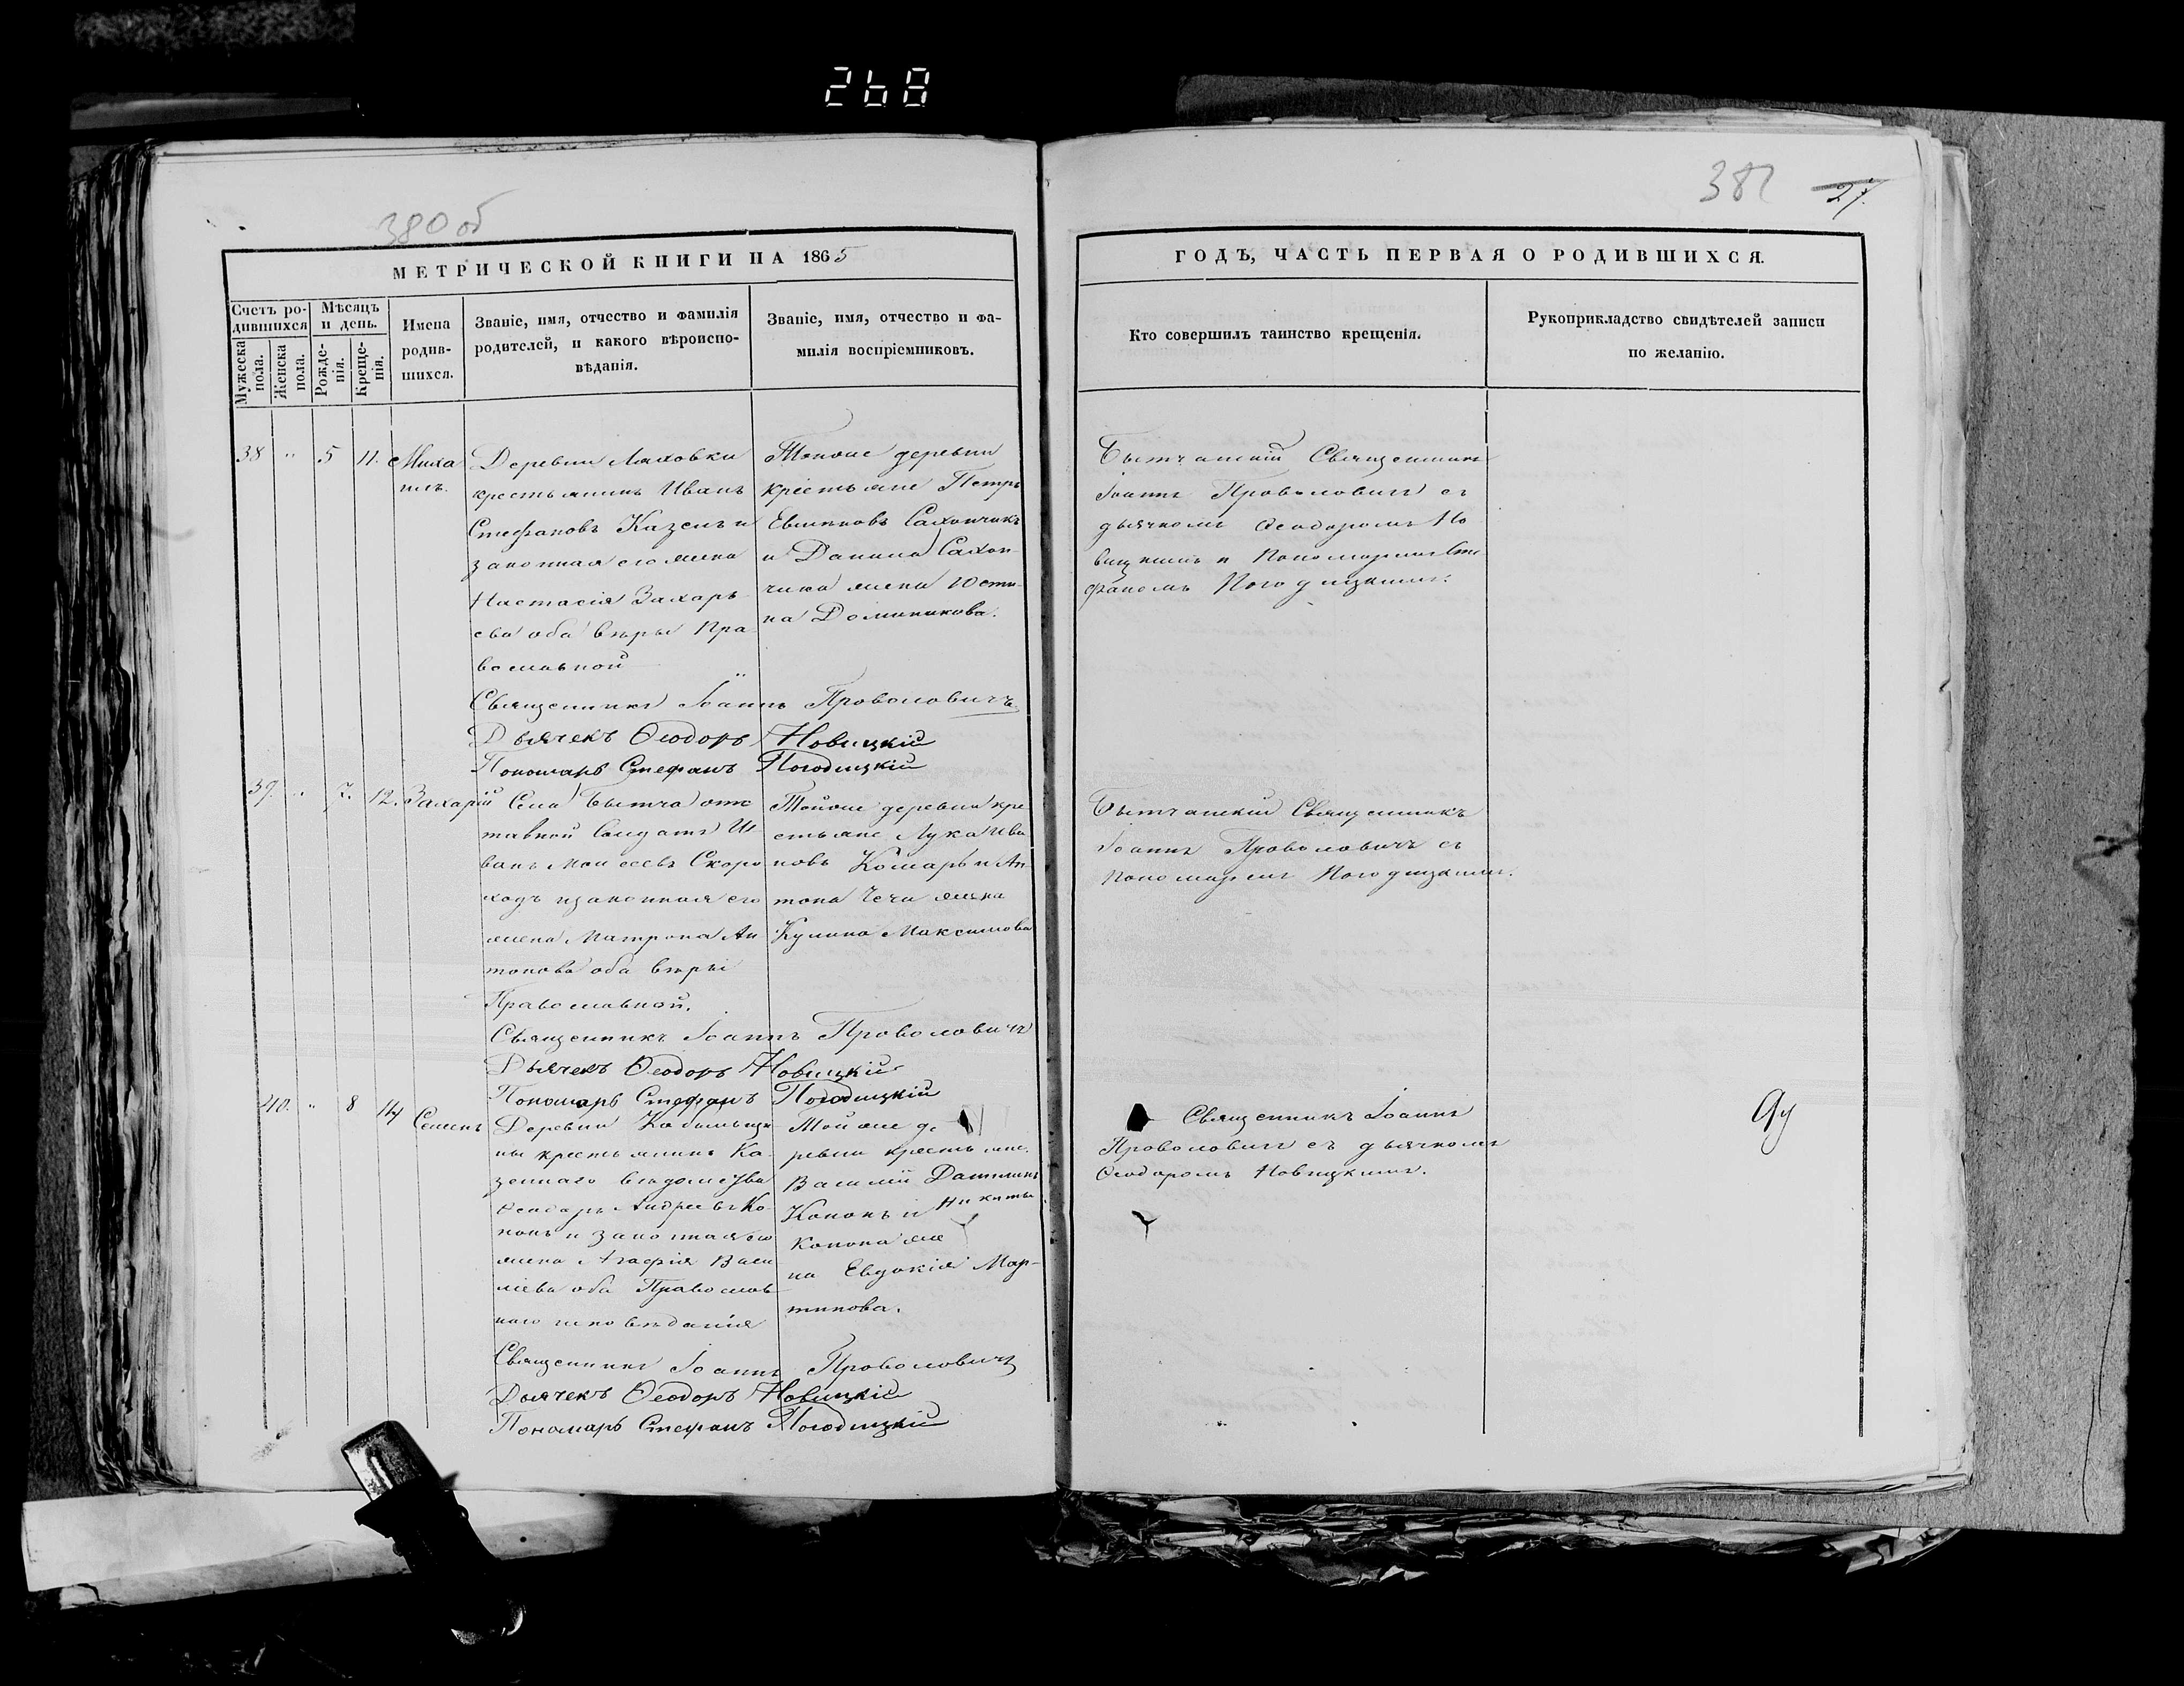 268
380 об
381
27.
МЕТРИЧЕСКОЙ КНИГИ НА 1865
ГОДЪ, ЧАСТЬ ПЕРВАЯ О РОДИВШИХСЯ.
Счетъ родившихся
Мужеска пола.
Женска пола.
Мѣсяцъ и день.
Рожденія.
Крещенія.
Имена родившихся.
Званіе, имя, отчество и фамилія
родителей, и какого вѣроиспо-
вѣданія.
Званіе, имя, отчество и фа-
милія воспріемниковъ.
Кто совершилъ таинство крещенія.
Рукоприкладство свидѣтелей записи
по желанію.
38 " 5 11. Миха
илъ.
Деревни Ляховки
крестьянинъ Иванъ
Стефановъ Казелъ и
законная его жена
Настасія Захарь
ева оба вѣры Пра
вославной
Тойже деревни
крестьяне Петръ
Сахончикъ
и Данила Сахон
чика жена Юсти
на Доминикова.
Бытчанскій Священникъ
Іоаннъ Проволовичъ съ
дьячкомъ Ѳеодоромъ Но
вицкимъ и Пономаремъ Сте
фаномъ Погодицкимъ.
Священникъ Іоаннъ Проволовичъ
Дьячекъ Ѳеодоръ Новицкій
Пономарь Стефанъ Погодицкій
39. " 7. 12. Захарій
Села Бытча отс
тавной Солдатъ И
ванъ Моисеевъ Скоро
ходъ и законная его
жена Матрона Ан
тонова оба вѣры
Православной.
Тойже деревни кре
стьяне Лука Ива
новъ Комаръ и Ан
тона Чечи жена
Кулина Максимова
Бытчанскій Священникъ
Іоаннъ Проволовичъ съ
Пономаремъ Погодицкимъ.
Священникъ Іоаннъ Проволовичъ
Дьячекъ Ѳеодоръ Новицкій
Пономарь Стефанъ Погодицкій
40. " 8 14 Семенъ
Деревни
крестьянинъ Ка
зеннаго вѣдомства
Ѳеодоръ Андреевъ Ко
нонъ и законная его
жена Агафія Васи
ліева оба Православ
наго исповѣданія
Тойже де
ревни крестьяне
Василій
Кононъ и Никиты
Конона же
на Евдокія Мар-
тинова.
Священникъ Іоаннъ
Проволовичъ съ дьячкомъ
Ѳеодоромъ Новицкимъ.
Священникъ Іоаннъ Проволовичъ
Дьячекъ Ѳеодоръ Новицкій
Пономарь Стефанъ Погодицкій